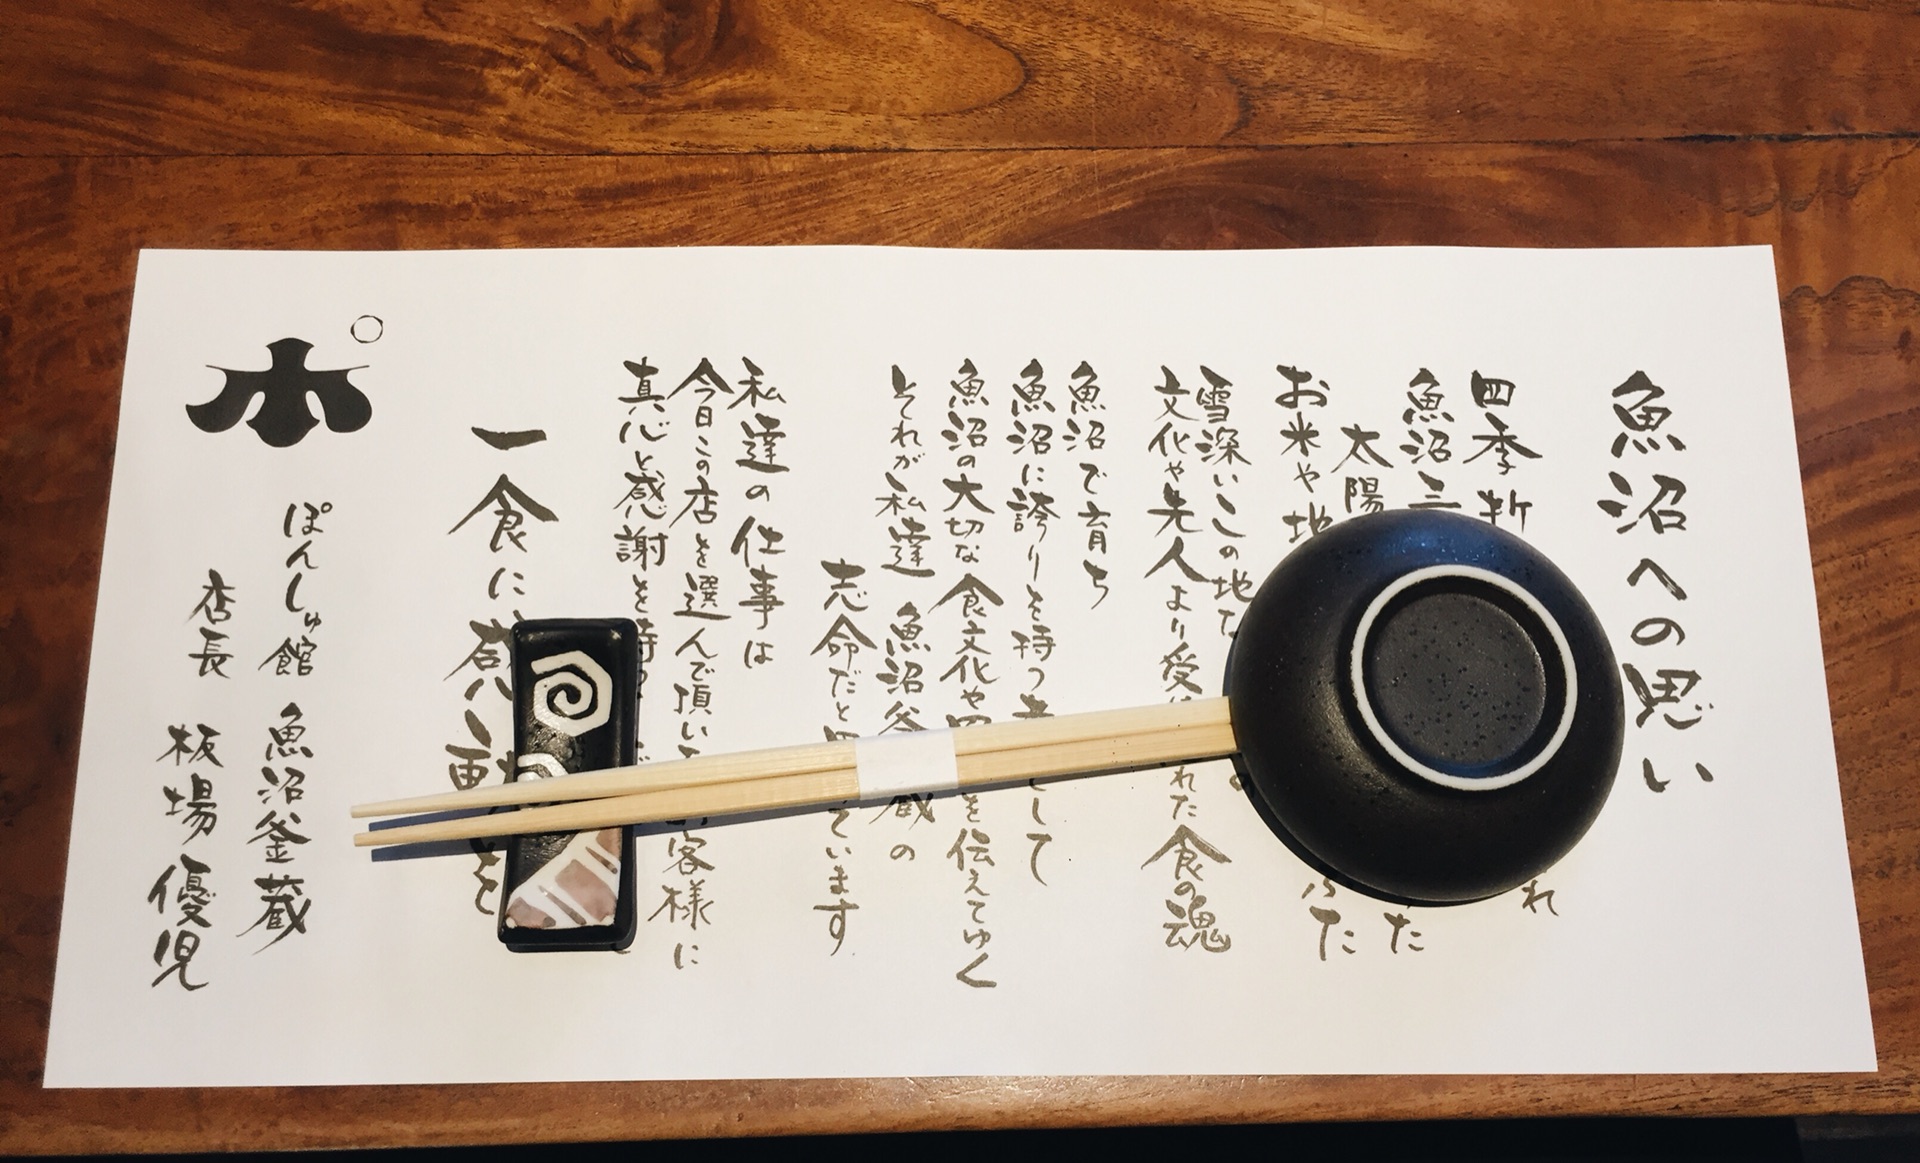 魚沼への思い
四季折 れ
魚沼三 た
太陽
お米や地 ふた
雪深いこの地な の
文化や先人より受け れた食の魂
魚沼で育ち
魚沼に誇りを持つ者として
魚沼の大切な食文化や四 を伝えてゆく
それが私達 魚沼釜蔵の
志命だと思 ています
私達の仕事は
今日この店を選んで頂いた お客様に
真心と感謝を持っ
一食に感 動を
ぽんしゅ館 魚沼釜蔵
店長 板場 優児